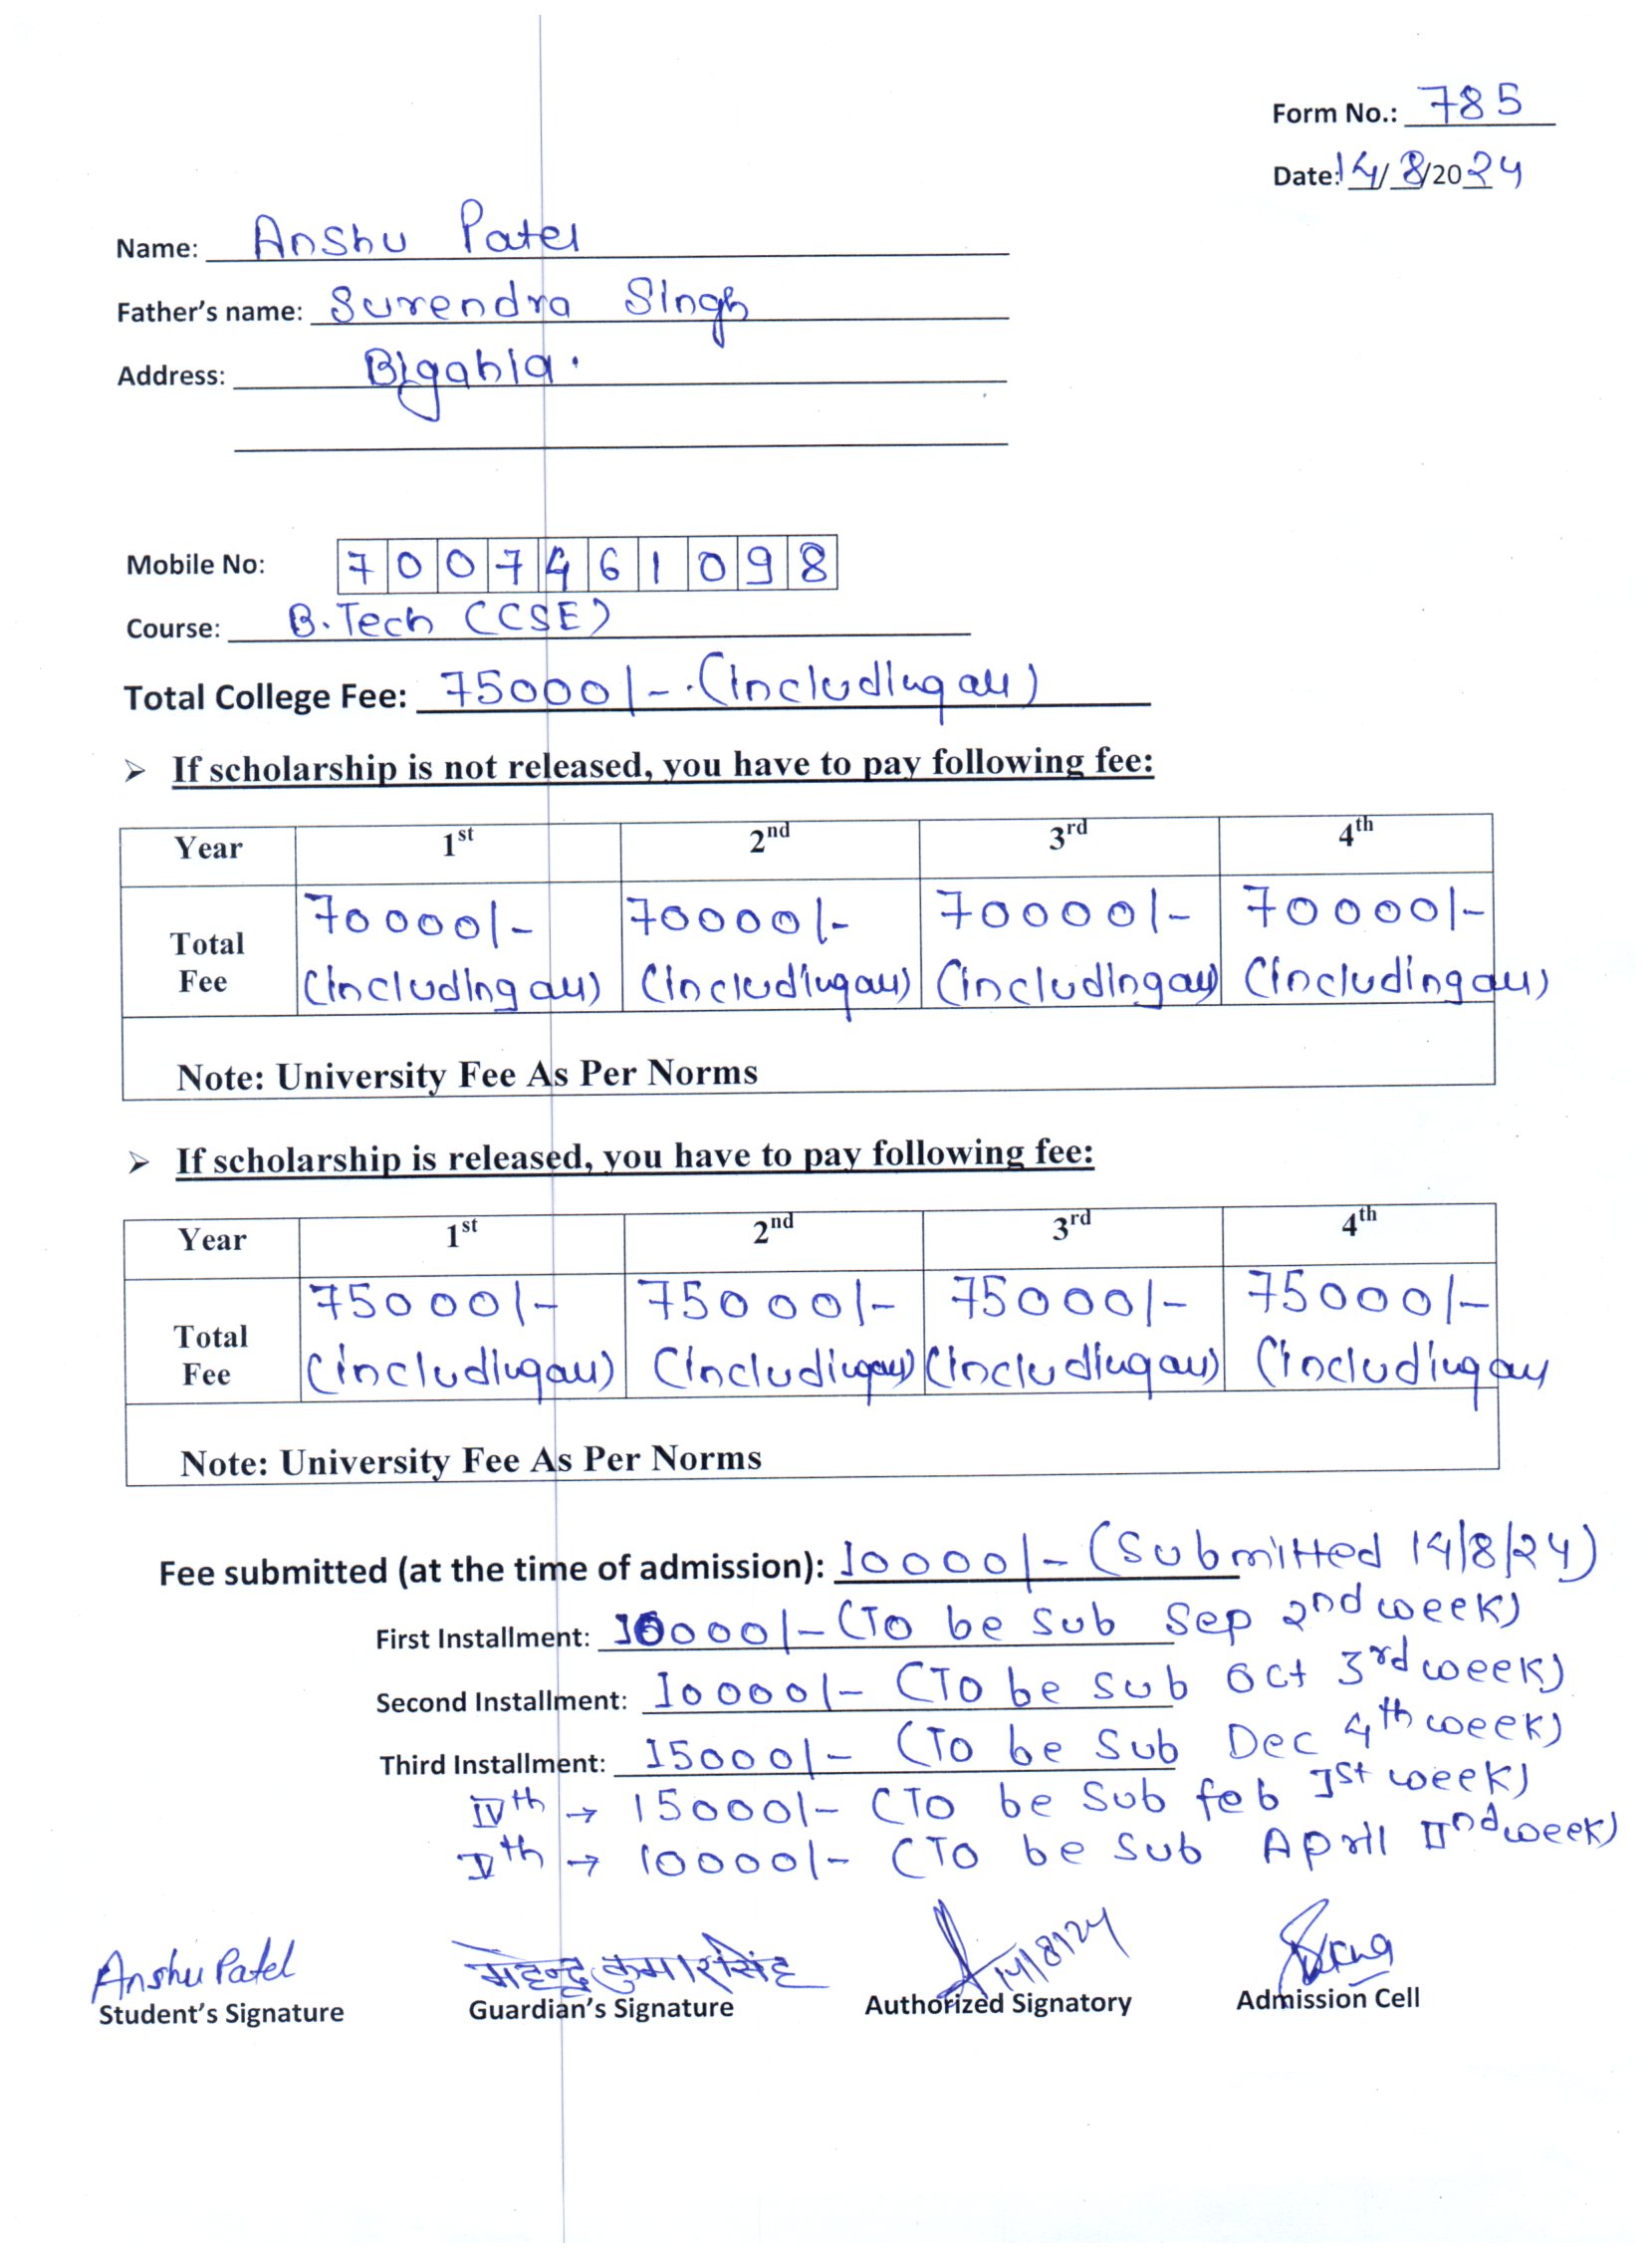 Form No.: 785
Date: 14/8/2024
Name: Anshu Patel
Father's name: Surendra Singh
Address: Bigahia.
Mobile No: 7007461098
Course: B.Tech (CSE)
Total College Fee: 75000/-. (Including all)
➢ If scholarship is not released, you have to pay following fee:
Year 1st 2nd 3rd 4th
Total Fee 70000/- 70000/- 70000/- 70000/-
(Including all) (Including all) (Including all) (Including all)
Note: University Fee As Per Norms
➢ If scholarship is released, you have to pay following fee:
Year 1st 2nd 3rd 4th
Total Fee 75000/- 75000/- 75000/- 75000/-
(Including all) (Including all) (Including all) (Including all
Note: University Fee As Per Norms
Fee submitted (at the time of admission): 10000/- (Submitted 14/8/24)
First Installment: 10000/- (To be sub Sep 2nd week)
Second Installment: 10000/- (To be sub Oct 3rd week)
Third Installment: 15000/- (To be sub Dec 4th week)
IVth → 15000/- (To be sub feb 1st week)
Vth → 10000/- (To be sub April IInd week)
Anshu Patel महेन्द्र कुमार सिंह 14/8/24
Student's Signature Guardian's Signature Authorized Signatory Admission Cell